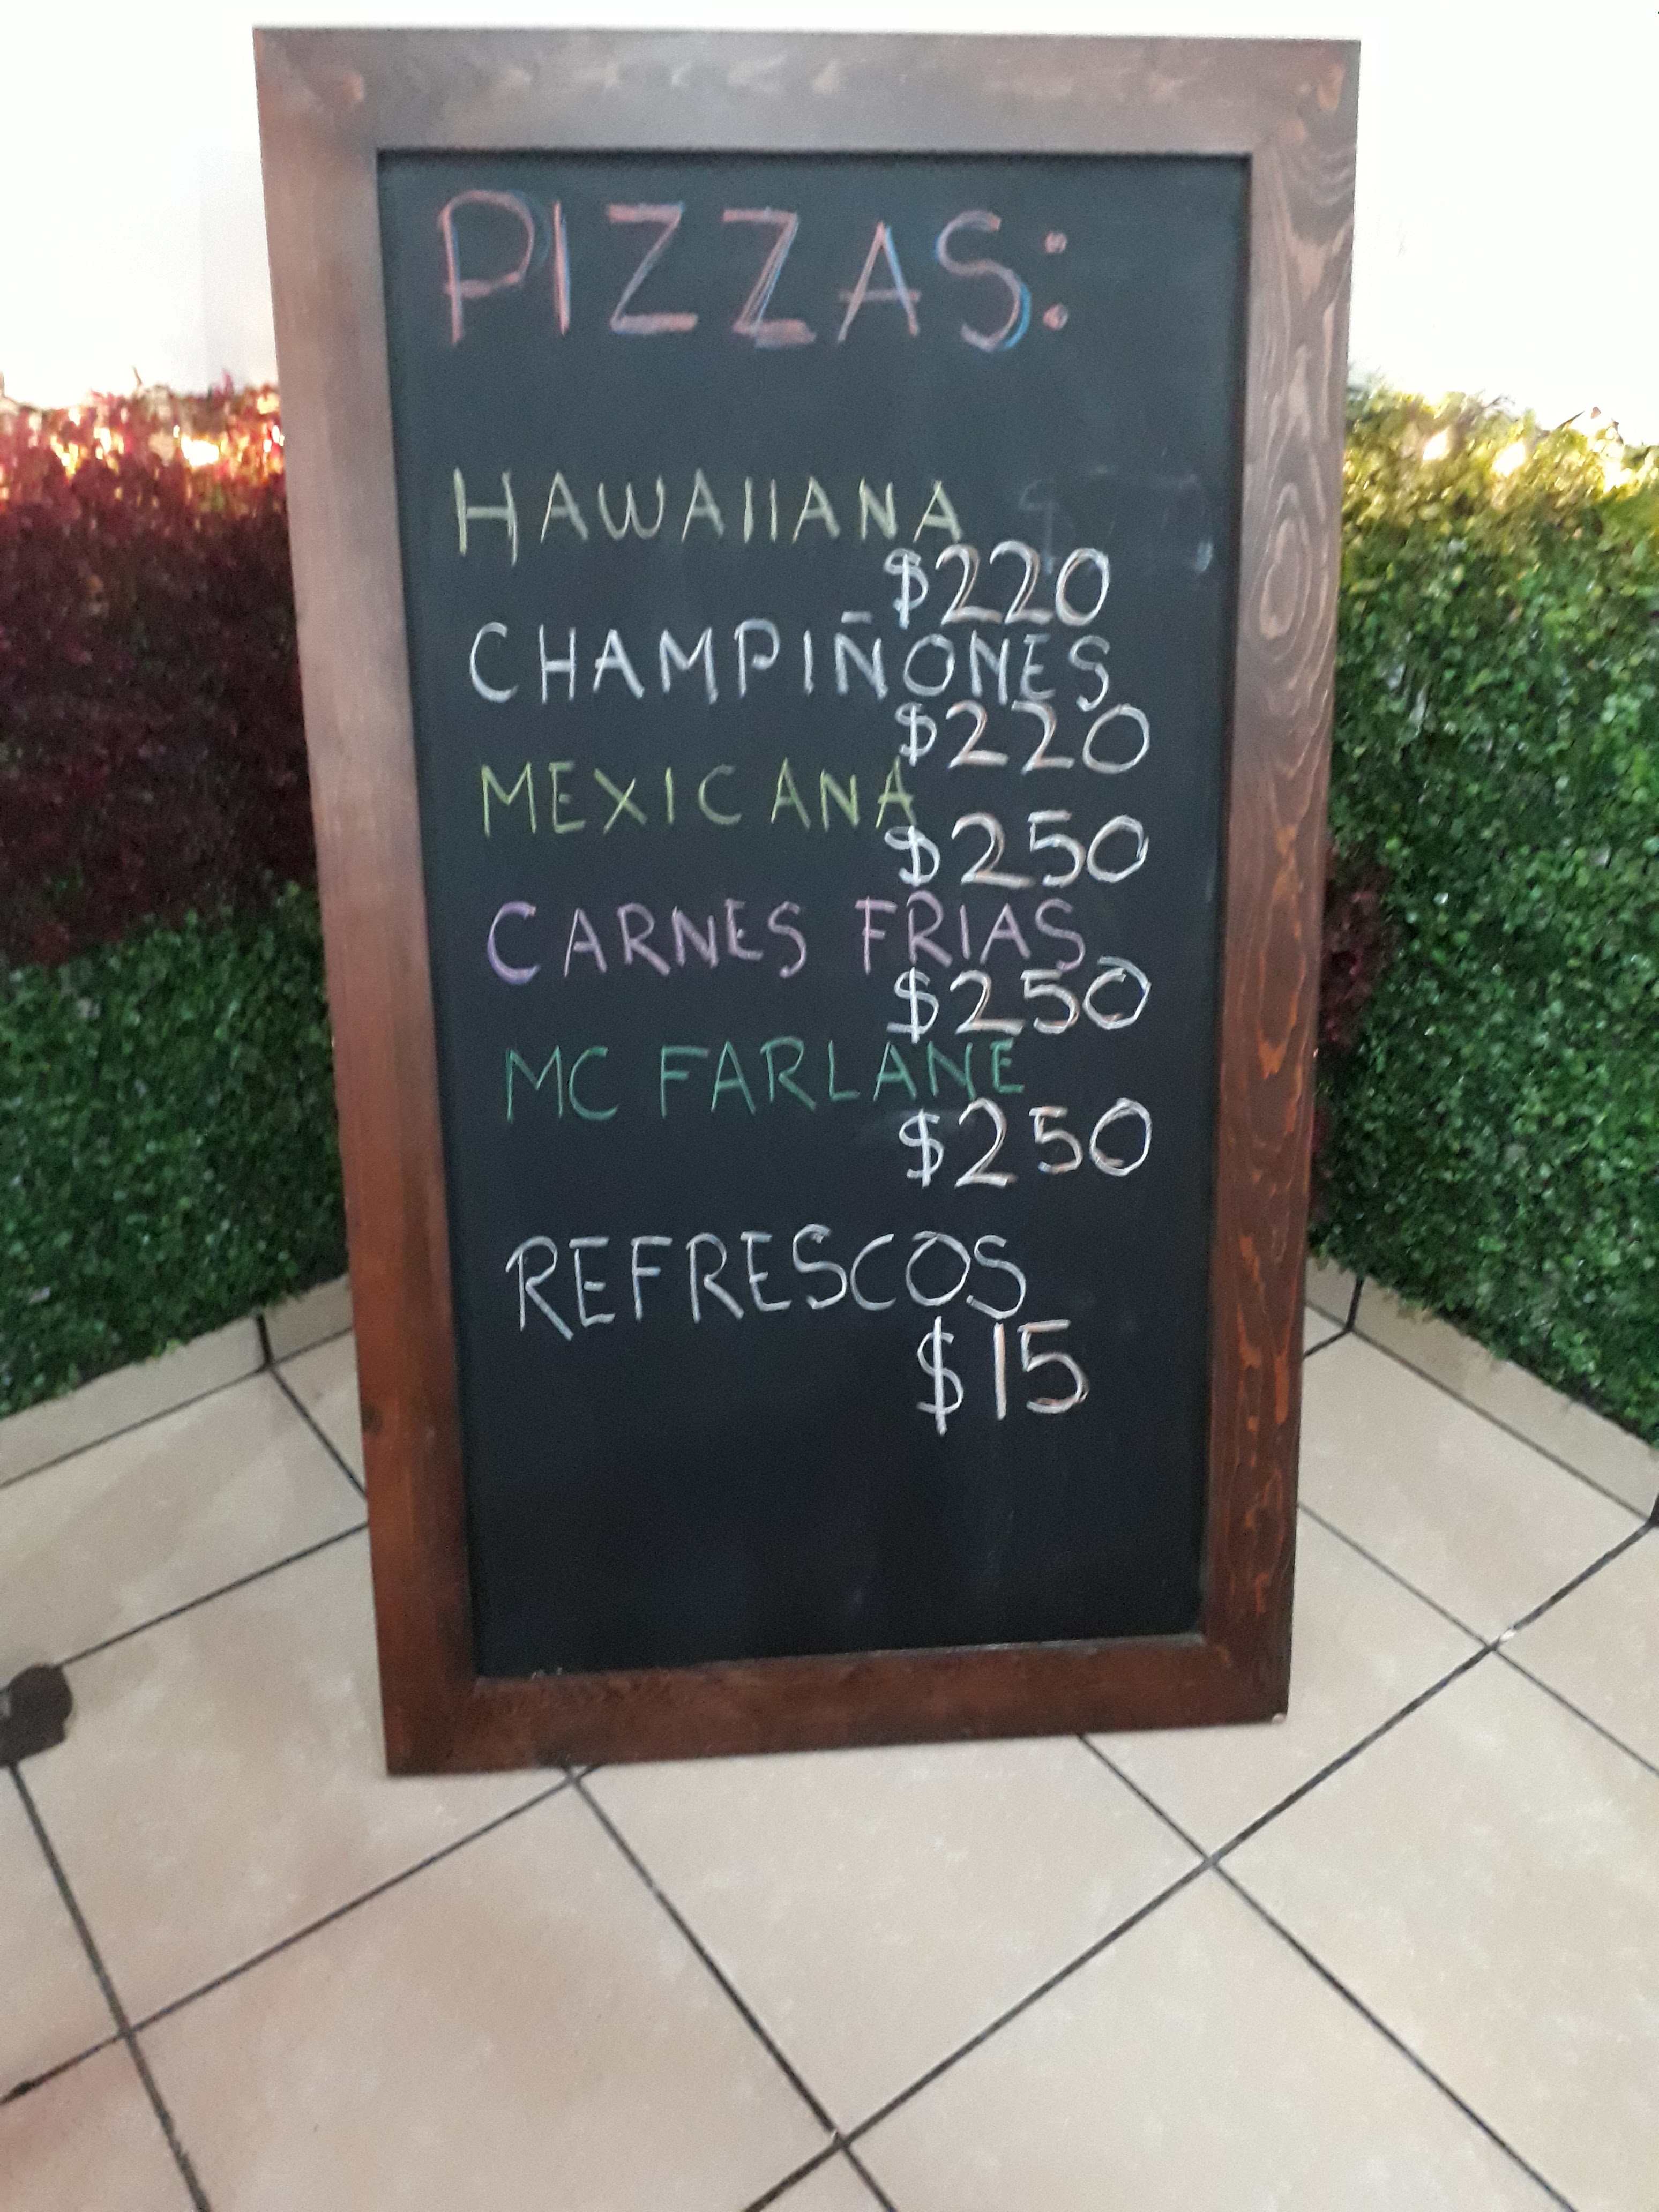 PIZZAS:
HAWAIIANA
$220
CHAMPIÑONES
$220
MEXICANA
$250
CARNES FRIAS
$250
MC FARLANE
$250
REFRESCOS
$15